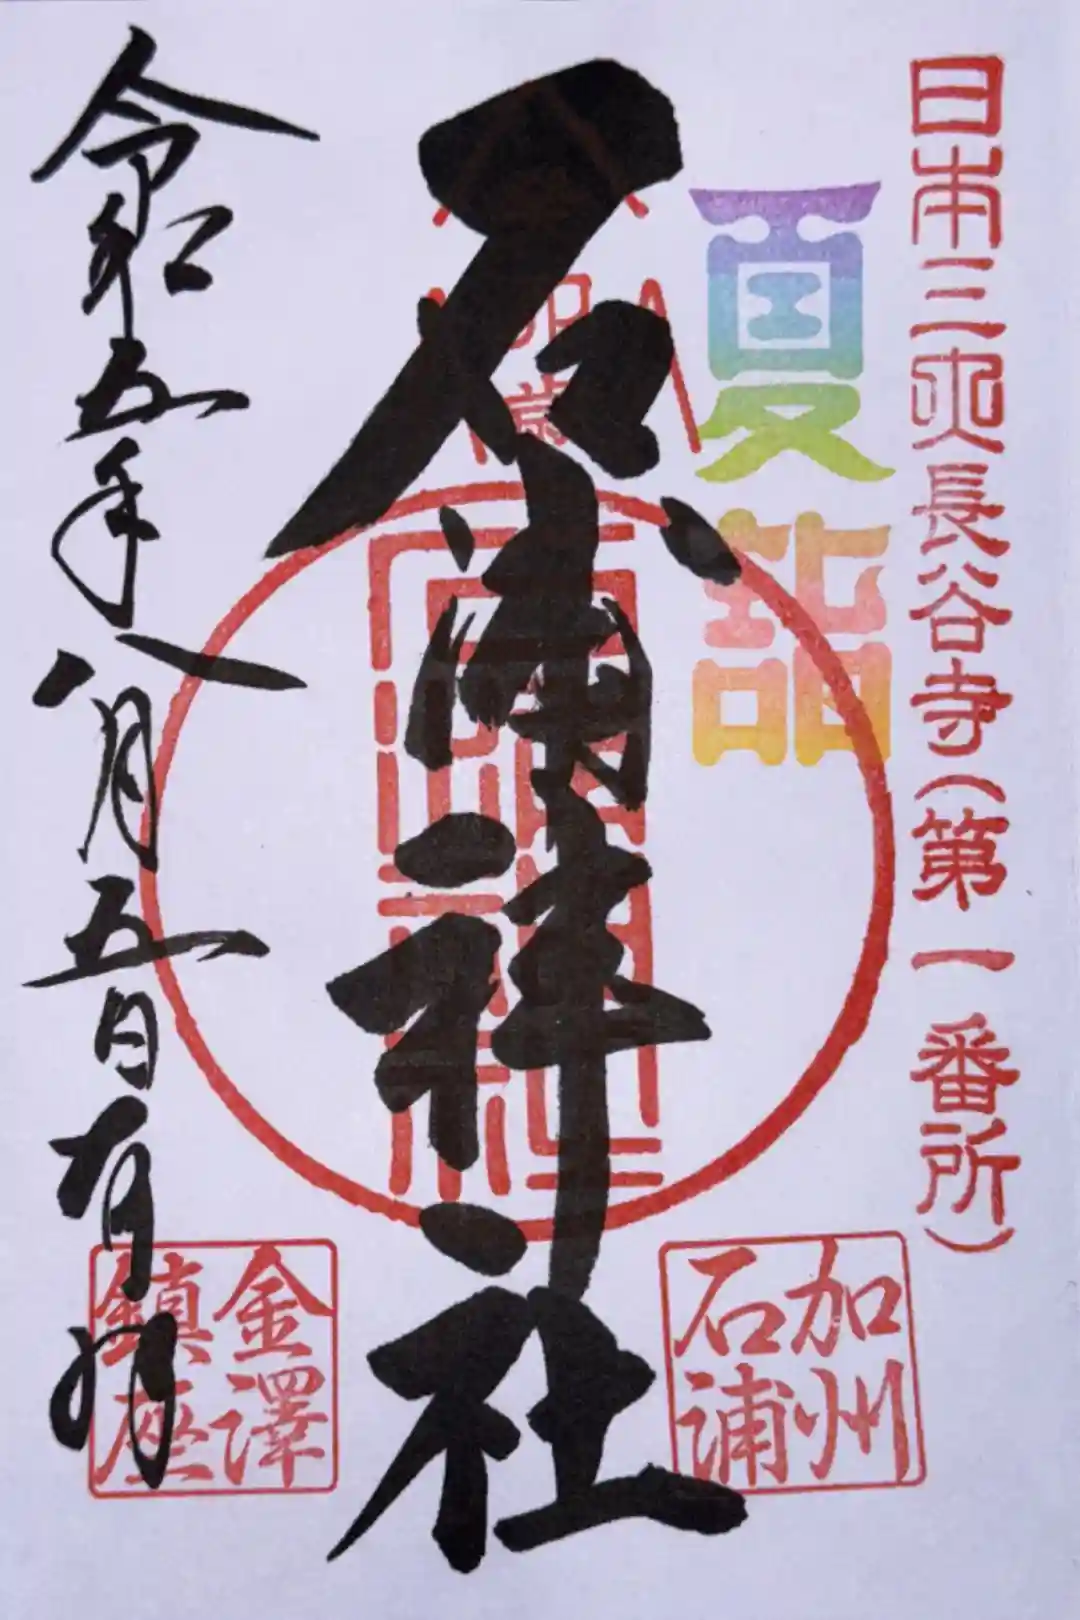 日本三大長谷寺(第一番所)
夏詣
卯歳
石浦神社
加州
石浦
令和五年八月五日有明
金澤
鎮座